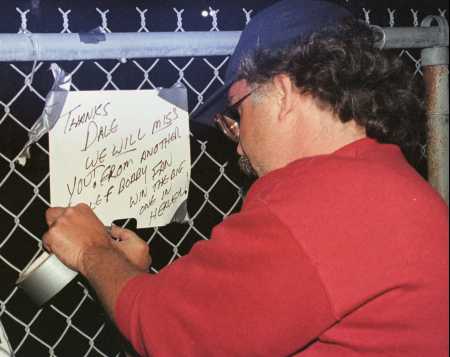 THANKS
DALE
WE WILL MISS
YOU! FROM ANOTHER
LE & BOBBY FAN
WIN THE BIG
ONE IN
HEAVEN!